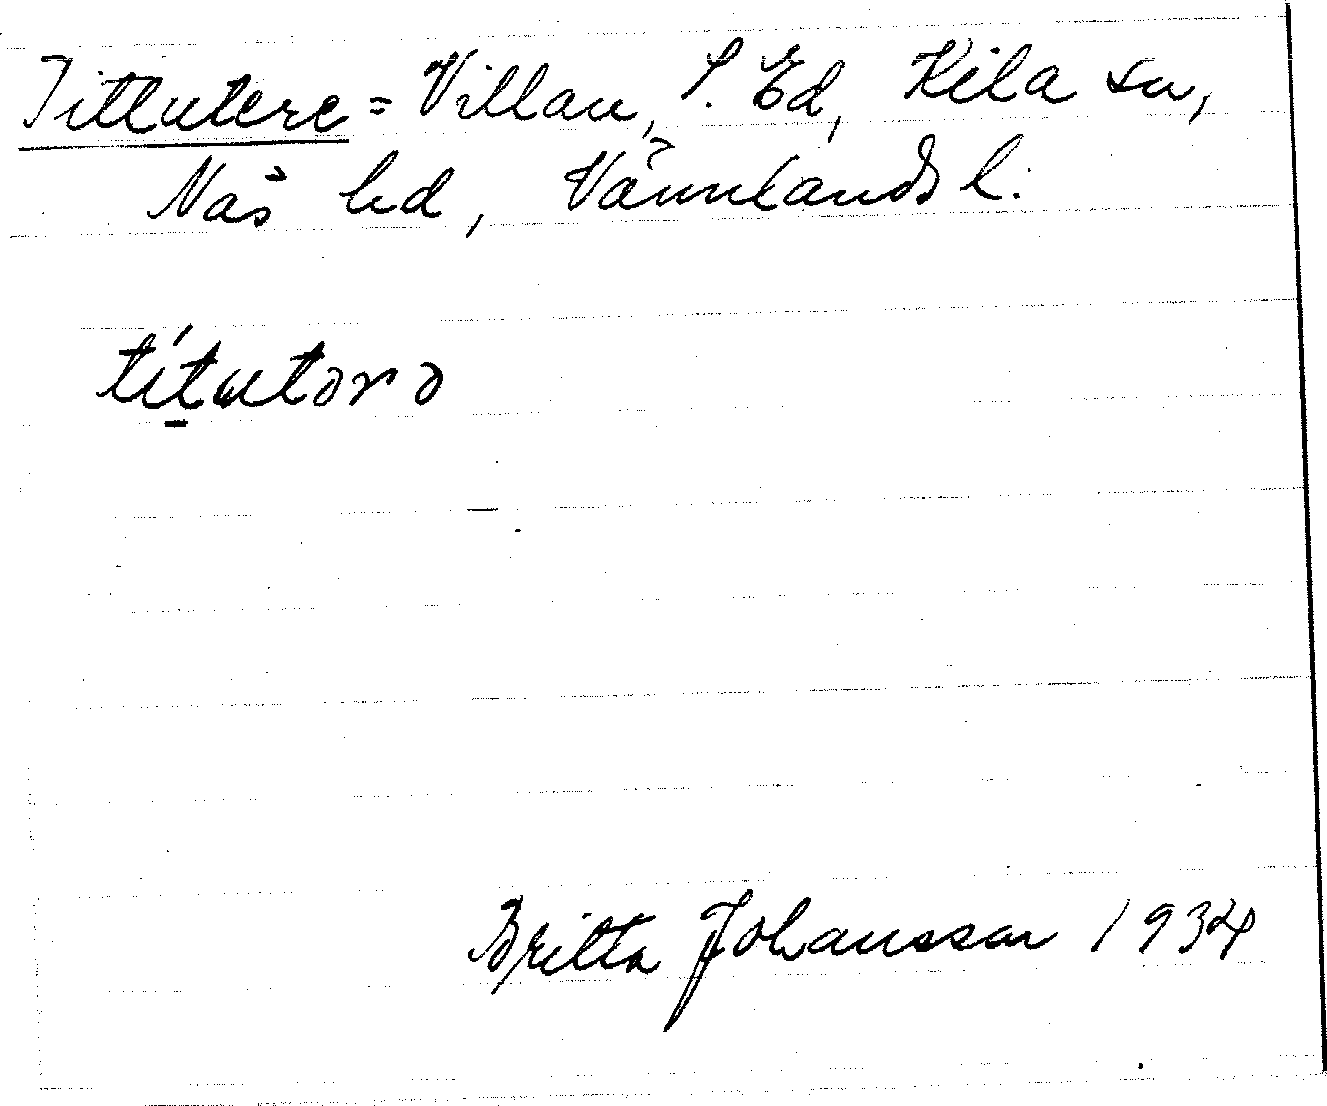 Tittutere = Villan, S. Ed, Kila sn,
Näs hd, Värmlands l.
títutərə
Britta Johansson 1934